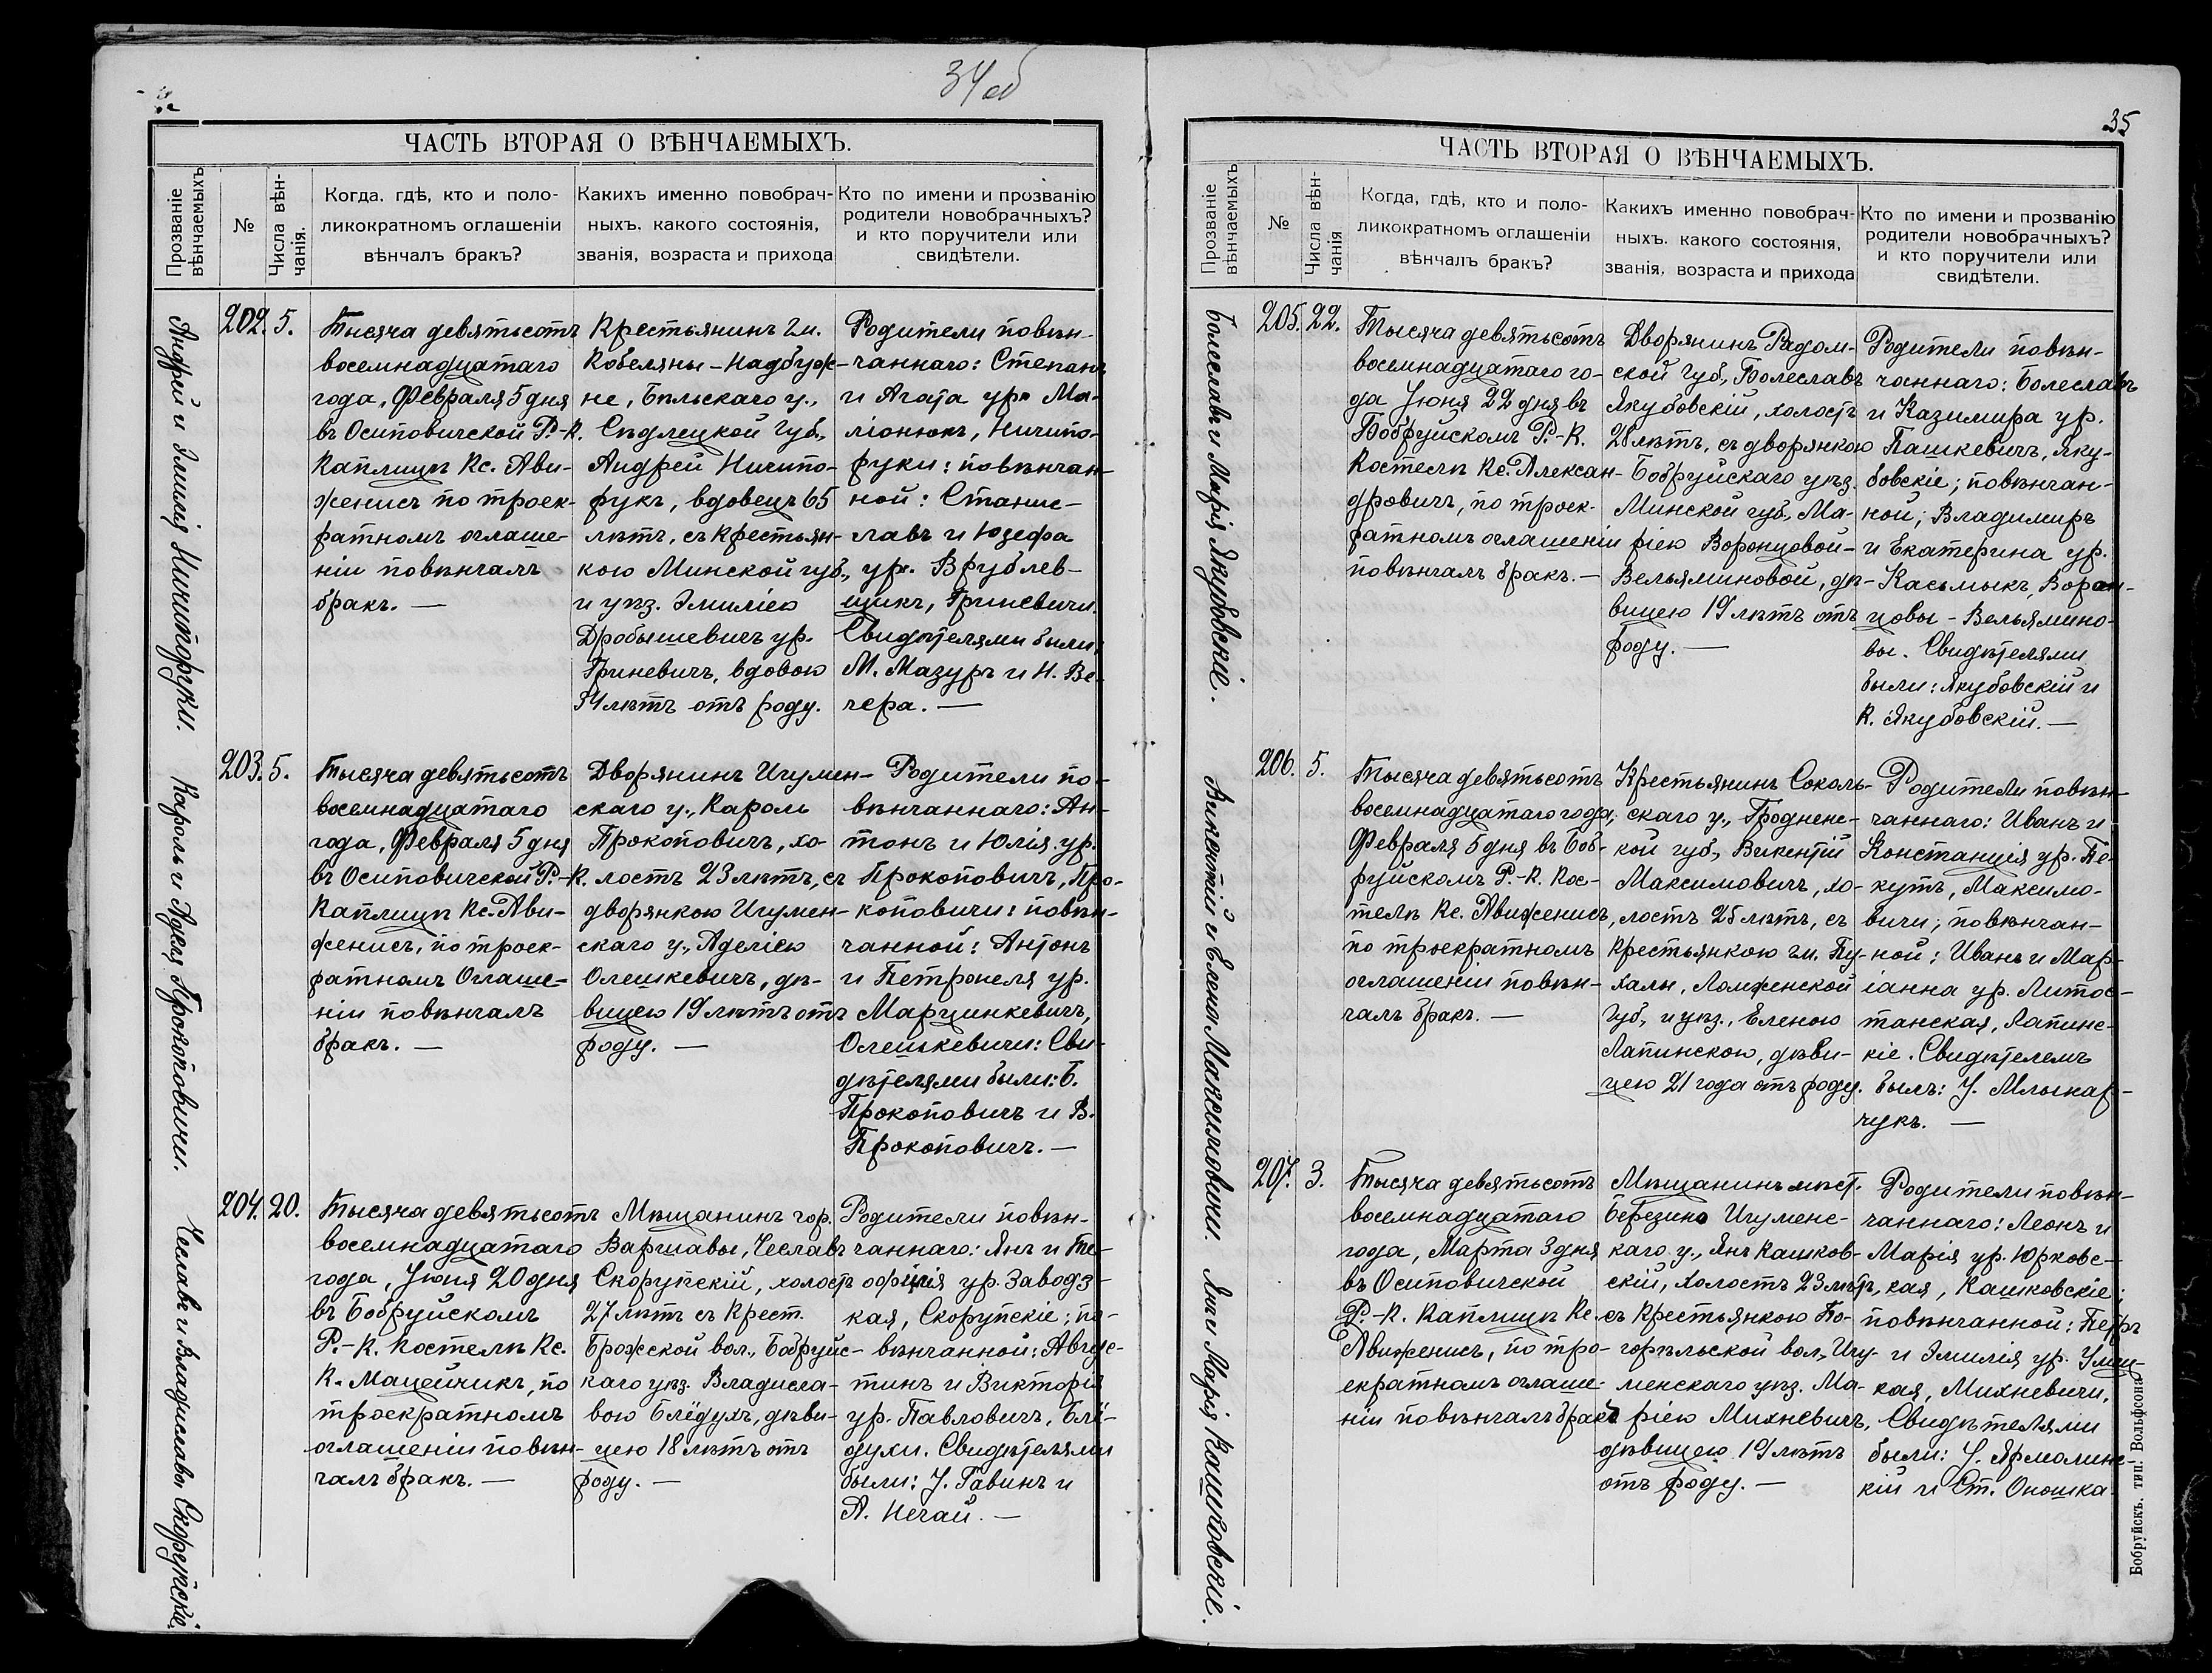 34об
ЧАСТЬ ВТОРАЯ О ВѢНЧАЕМЫХЪ.
Прозваніе
вѣнчаемыхъ
№
Числа вѣн-
чанія.
Когда, гдѣ, кто и поло-
ликократномъ оглашеніи
вѣнчалъ бракъ?
Какихъ именно повобрач-
ныхъ, какого состоянія,
званія, возраста и прихода
Кто по имени и прозванію
родители новобрачныхъ?
и кто поручители или
свидѣтели.
Андрей и Эмилія Ничипоруки.
202. 5.
Тысяча девятьсотъ
восемнадцатаго
года, Февраля 5 дня
въ Осиповичской Р.-К.
Каплицѣ Кс. Ави-
женисъ по троек-
ратномъ оглаше-
ніи повѣнчалъ
бракъ. —
Крестьянинъ гм.
Кобеляны-Надбуж-
не, Бѣльскаго у.,
Сѣдлецкой губ.,
Андрей Ничипо-
рукъ, вдовецъ 65
лѣтъ, съ крестьян-
кою Минской губ.,
и уѣз. Эмиліею
Дробышевичъ ур.
Гриневичъ, вдовою
54 лѣтъ отъ роду.
Родители повѣн-
чаннаго: Степанъ
и Агата ур. Ма-
ліонюкъ, Ничипо-
руки: повѣнчан-
ной: Станис-
лавъ и Юзефа
ур. Врублев-
щикъ, Гриневичи.
Свидѣтелями были:
М. Мазуръ и Н. Ве-
чера. —
Кароль и Аделя Прокоповичи.
203. 5.
Тысяча девятьсотъ
восемнадцатаго
года, Февраля 5 дня
въ Осиповичской Р.-К.
Каплицѣ Кс. Ави-
женисъ, по троек-
ратномъ оглаше-
ніи повѣнчалъ
бракъ. —
Дворянинъ Игумен-
скаго у., Кароль
Прокоповичъ, хо-
лостъ 23 лѣтъ, съ
дворянкою Игумен-
скаго у., Аделіею
Олешкевичъ, дѣ-
вицею 19 лѣтъ отъ
роду. —
Родители по-
вѣнчаннаго: Ан-
тонъ и Юлія ур.
Прокоповичъ, Про-
коповичи: повѣн-
чанной: Антонъ
и Петронеля ур.
Марцинкевичъ,
Олешкевичи: Сви-
дѣтелями были: Б.
Прокоповичъ и В.
Прокоповичъ. —
Чеславъ и Владислава Скорупскіе.
204. 20.
Тысяча девятьсотъ
восемнадцатаго
года, Іюня 20 дня
въ Бобруйскомъ
Р.-К. Костелѣ Кс.
К. Мацейчикъ, по
троекратномъ
оглашеніи повѣн-
чалъ бракъ. —
Мѣщанинъ гор.
Варшавы, Чеславъ
Скорупскій, холостъ
27 лѣтъ съ Крест.
Брожской вол., Бобруйс-
каго уѣз. Владисла-
вою Блёдухъ, дѣви-
цею 18 лѣтъ отъ
роду. —
Родители повѣн-
чаннаго: Янъ и Те-
офилія ур. Завод3-
кая, Скорупскіе; по-
вѣнчанной: Авгус-
тинъ и Викторія
ур. Павловичъ, Блё-
духи. Свидѣтелями
были: У. Гавинъ и
А. Нечай. —
35
ЧАСТЬ ВТОРАЯ О ВѢНЧАЕМЫХЪ.
Прозваніе
вѣнчаемыхъ
№
Числа вѣн-
чанія
Когда, гдѣ, кто и поло-
ликократномъ оглашеніи
вѣнчалъ бракъ?
Какихъ именно повобрач-
ныхъ, какого состоянія,
званія, возраста и прихода
Кто по имени и прозванію
родители новобрачныхъ?
и кто поручители или
свидѣтели.
Болеславъ и Марія Якубовскіе.
205. 22.
Тысяча девятьсотъ
восемнадцатаго го-
да Іюня 22 дня въ
Бобруйскомъ Р.-К.
Костелѣ Кс. Алексан-
дровичъ, по троек-
ратномъ оглашеніи
повѣнчалъ бракъ. —
Дворянинъ Радом-
ской губ., Болеславъ
Якубовскій, холостъ
28 лѣтъ, съ дворянкою
Бобруйскаго уѣз.
Минской губ., Ма-
ріею Воронцовой-
Вельяминовой, дѣ-
вицею 19 лѣтъ отъ
роду. —
Родители повѣн-
чаннаго: Болеславъ
и Казимира ур.
Пашкевичъ, Яку-
бовскіе; повѣнчан-
ной; Владимиръ
и Екатерина ур.
Касьмыкъ, Ворон-
цовы-Вельямино-
вы. Свидѣтелями
были: Якубовскій и
К. Якубовскій. —
Викентій и Елена Максимовичи.
206. 5.
Тысяча девятьсотъ
восемнадцатаго года,
Февраля 5 дня въ Боб-
руйскомъ Р.-К. Кос-
телѣ Кс. Авиженисъ,
по троекратномъ
оглашеніи повѣн-
чалъ бракъ. —
Крестьянинъ Соколь-
скаго у., Гродненс-
кой губ., Викентій
Максимовичъ, хо-
лостъ 25 лѣтъ, съ
крестьянкою гм. Пу-
халы, Ломженской
губ., и уѣз., Еленою
Лапинскою, дѣви-
цею 21 года отъ роду.
Родители повѣн-
чаннаго: Иванъ и
Констанція ур. Пе-
кутъ, Максимо-
вичи; повѣнчан-
ной: Иванъ и Мар-
іанна ур. Литос-
танская, Лапинс-
кіе. Свидѣтелемъ
былъ: У. Млынар-
чукъ. —
Янъ и Марія Кашковскіе.
207. 3.
Тысяча девятьсотъ
восемнадцатаго
года, Марта 3 дня
въ Осиповичской
Р.-К. Каплицѣ Кс.
Авиженисъ, по тро-
екратномъ оглаше-
ніи повѣнчалъ бракъ
Мѣщанинъ мѣст.
Березино Игуменс-
каго у., Янъ Кашков-
скій, холостъ 23 лѣтъ,
съ крестьянкою По-
горѣльской вол., Игу-
менскаго уѣз. Ма-
ріею Михневичъ,
дѣвицею 19 лѣтъ
отъ роду. —
Родители повѣн-
чаннаго: Леонъ и
Марія ур. Юрковс-
кая, Кашковскіе;
повѣнчанной: Петръ
и Эмилія ур.
кая, Михневичи.
Свидѣтелями
были: У. Ярмолинс-
кій и Ст. Оношка
Бобруйскъ. тип. Вольфсона